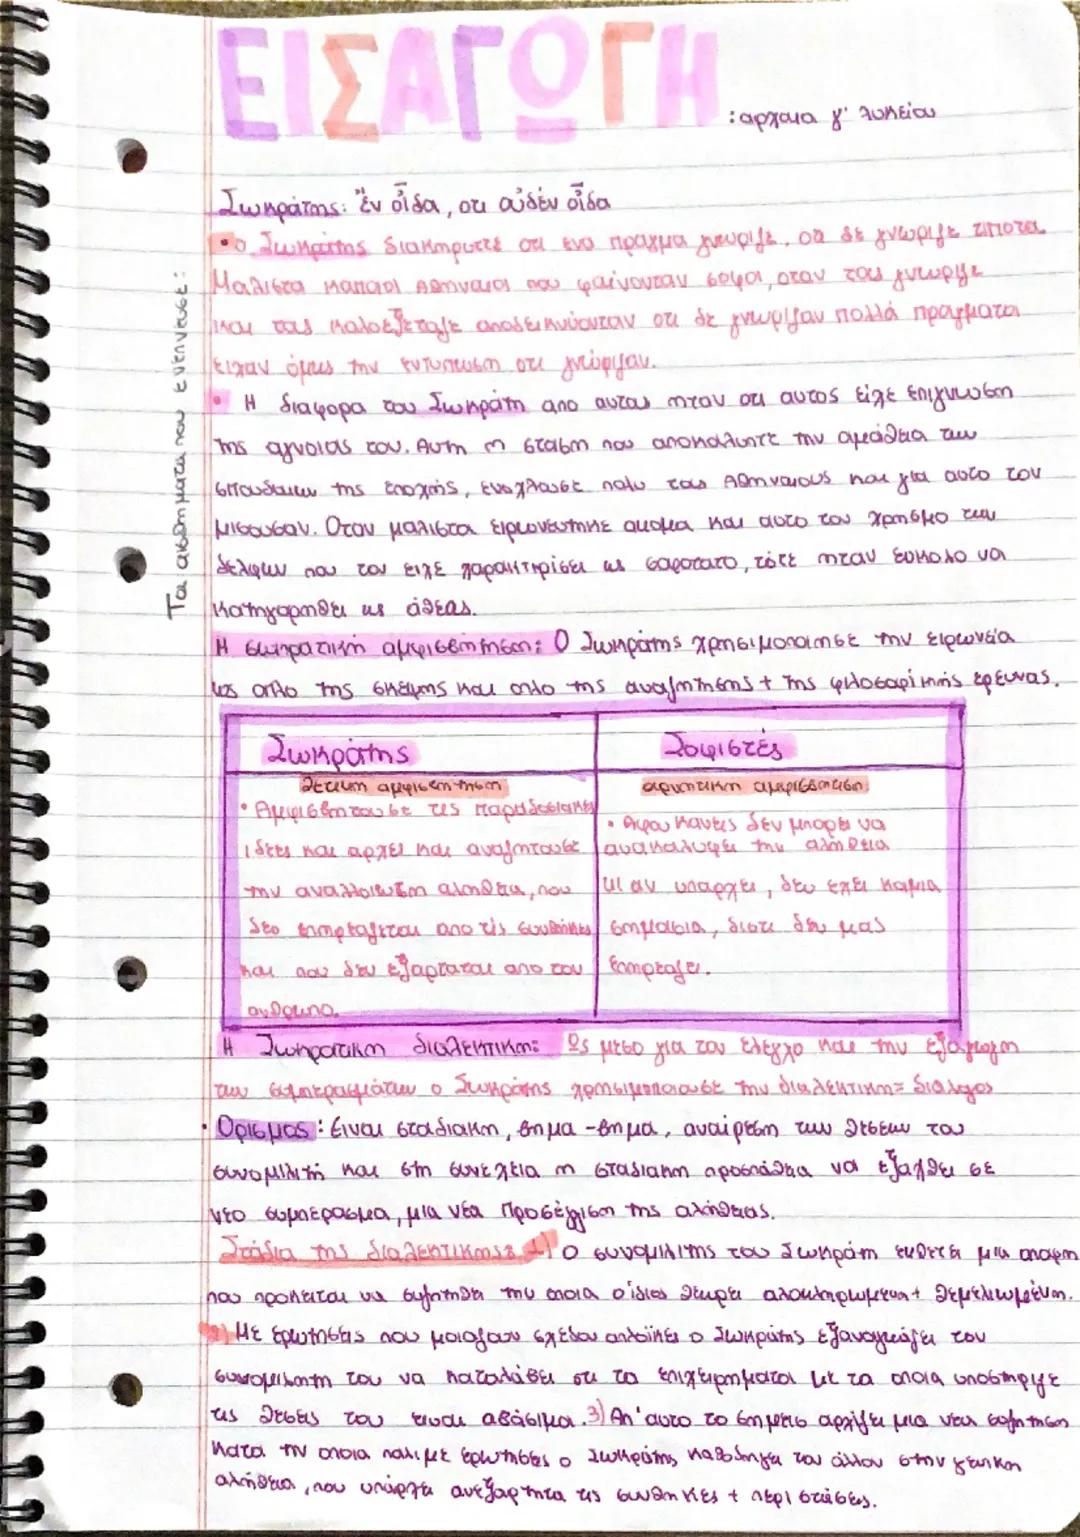 ΕΙΣΑΓΩΓΗ
: αρχαια γ' λυκείου
Σωκράτης: Ἕν οἶδα, οτι οὐδέν οἶδα
• Ο Σωκρατης διακηρυττε οτι ενα πραγμα γνωριζε, οτι δε γνωριζε τιποτα.
Μαλιστα καποιοι Αθηναιοι που φαίνονταν σοφοι, οταν τους γνωριζε
και τους καλοεξεταζε αποδεικνύονταν οτι δε γνωριζαν πολλά πραγματα
ειχαν όμως την εντυπωση οτι γνώριζαν.
• Η διαφορα του Σωκράτη απο αυτους ηταν οτι αυτος είχε επιγνωση
της αγνοιας του. Αυτη η σταση που αποκαλυπτε την αμάθεια των
σπουδαιων της εποχής, ενοχλουσε πολυ τους Αθηναιους και για αυτο τον
μισουσαν. Οταν μαλιστα ειρωνευτηκε ακομα και αυτο τον χρησμο των
δελφων που τον ειχε χαρακτηρίσει ως σοφοτατο, τότε ηταν ευκολο να
κατηγορηθει ως άθεος.
Η σωκρατική αμφισβητηση: Ο Σωκράτης χρησιμοποιησε την ειρωνεία
ως οπλο της σκέψης και οπλο της αναζητησης + της φιλοσοφικής ερευνας.
Σωκράτης
Σοφιστές
θετικη αμφισβητηση
αρνητικη αμφισβητηση
• Αμφισβητουσε τις παραδοσιακες
ιδεες και αρχει και αναζητουσε
την αναλλοιωτη αληθεια, που
δεν επηρεαζεται απο τις συνθηκες
και που δεν εξαρταται απο τον
ανθρωπο.
• Αφου κανεις δεν μπορει να
ανακαλυψει την αληθεια
κι αν υπαρχει, δεν εχει καμια
σημασια, διοτι δεν μας
επηρεαζει.
Η Σωκρατικη διαλεκτικη: Ως μεσο για τον ελεγχο και την εξαγωγη
των συμπερασμάτων ο Σωκράτης χρησιμοποιουσε την διαλεκτικη= διαλογος
• Ορισμος: Ειναι σταδιακη, βημα-βημα, αναίρεση των θεσεων του
συνομιλητή και στη συνεχεια η σταδιακη προσπάθεια να εξαχθει σε
νεο συμπερασμα, μια νέα προσέγγιση της αλήθειας.
Στάδια της διαλεκτικης: 1) Ο συνομιλητης του Σωκράτη εκθετει μια αποψη
που προκειται να συζητηθει την οποια ο ίδιος θεωρει ολοκληρωμενη + θεμελιωμένη.
2) Με ερωτησεις που μοιαζουν σχεδον απλοϊκες ο Σωκράτης εξαναγκάζει τον
συνομιλητη του να καταλάβει οτι τα επιχειρηματα με τα οποια υποστηριζε
τις θεσεις του ειναι αβάσιμα. 3) Απ'αυτο το σημειο αρχιζει μια νεα συζητηση
κατα την οποια παλι με ερωτησεις ο Σωκράτης καθοδηγει τον άλλον στην γενικη
αλήθεια, που υπάρχει ανεξαρτητα τις συνθηκες + περιστάσεις.
Τα αισθηματα που ενεπνευσε: